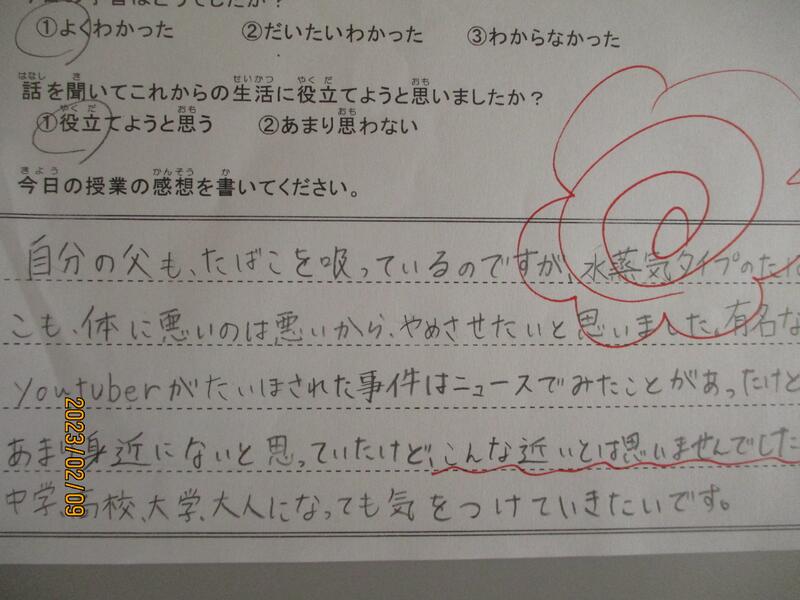 ①よくわかった ②だいたいわかった ③わからなかった
話を聞いてこれからの生活に役立てようと思いましたか？
①役立てようと思う ②あまり思わない
今日の授業の感想を書いてください。
自分の父も、たばこを吸っているのですが、水蒸気タイプのたば
こも、体に悪いのは悪いから、やめさせたいと思いました。有名な
youtuberがたいほされた事件はニュースでみたことがあったけど
あまり身近にないと思っていたけど、こんな近いとは思いませんでした
中学、高校、大学、大人になっても気をつけていきたいです。
2023/02/09